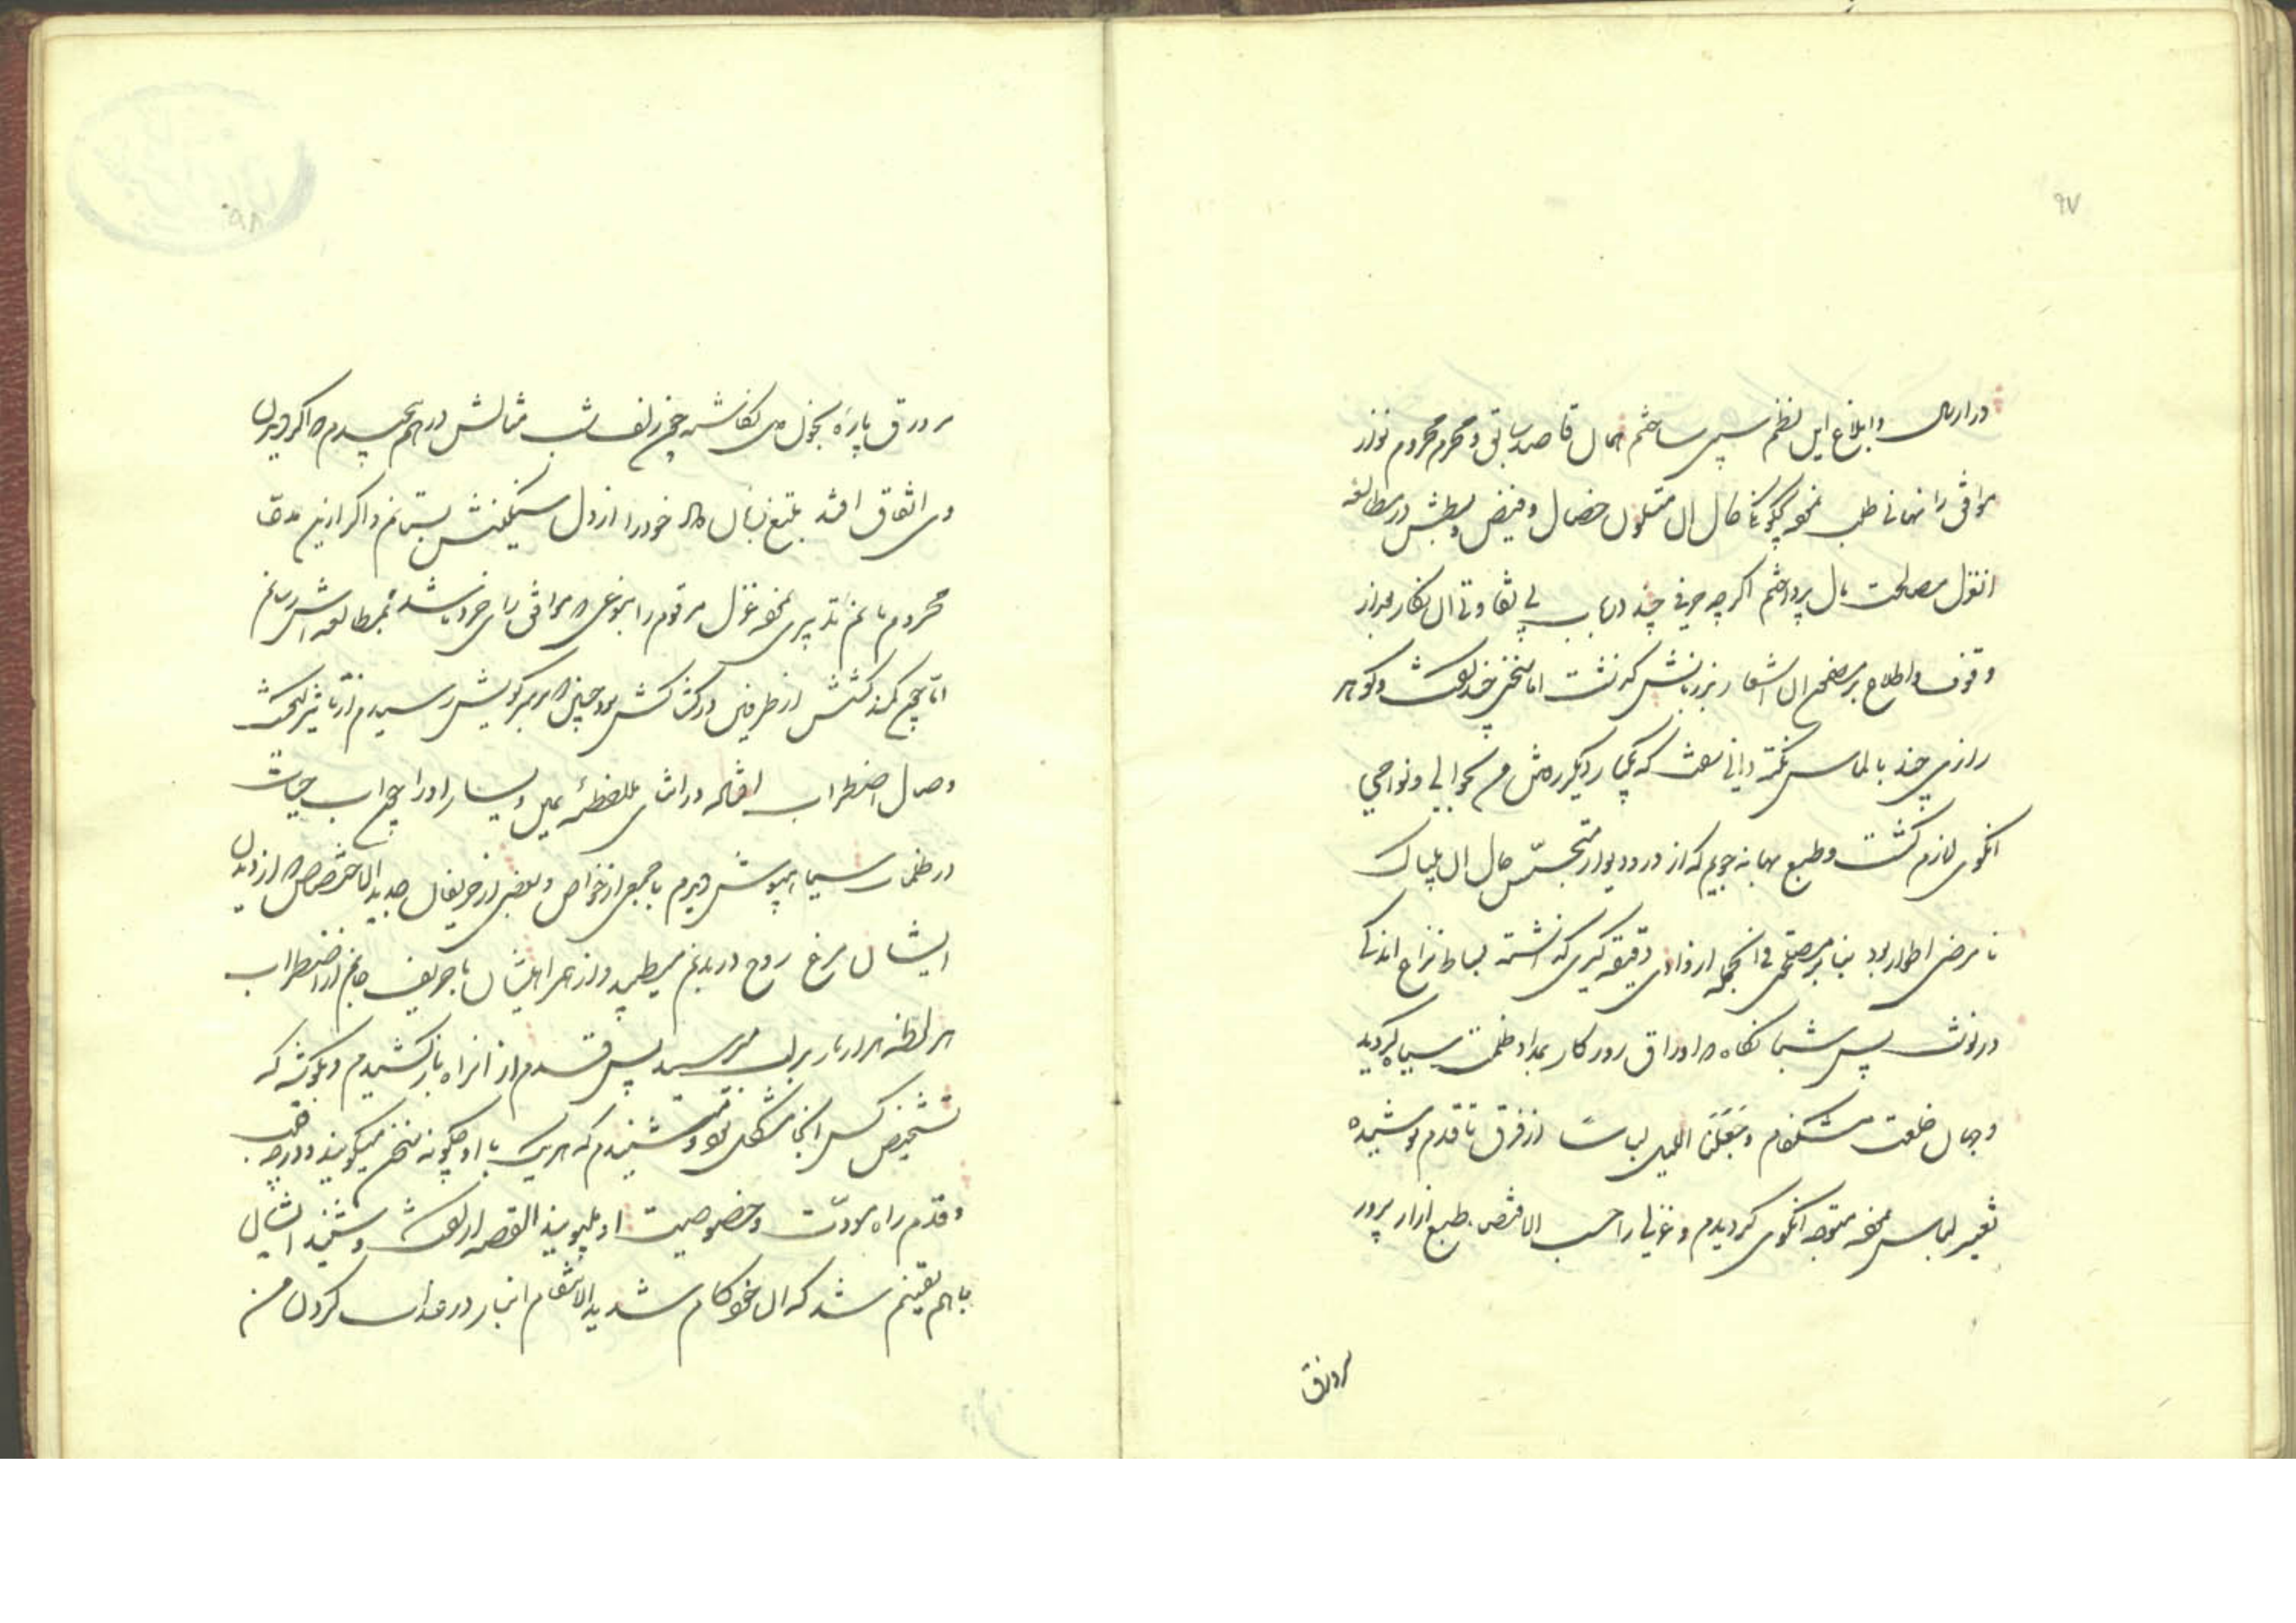 ۹۷
در ارسال و ابلاغ این نظم سپس ساختم همان قاصد سابق و محرم محروم نواز
موافق را نهانی طلب نموده که حال آن متلون خصال و فیض و بطش در مطالعه
انغزل مصلحت بآن پرداختم اگر چه حرفی چند در باب بی تفاوتی آن نگار بعد از
وقوف و اطلاع بر مضمون آن اشعار بر زبانش گذشت اما سخنی چند گفت و گوهر
رازی چند بالماس نکته دانی سفت که یکبار دیگر رفتن من بحوالی و نواحی
انکوی لازم گشت و طبع بهانه جویم که از در و دیوار متجسس حال آن بیباک
نامرضی اطوار بود بنابر مصلحتی فی الجمله از وادی دقیقه گیری گذشته بساط نزاع اندکی
در نوشت پس شبانگاه که اوراق روزگار بمداد ظلمت سیاه گردید
و جهان خلعت مشکفام وجعلنا اللیل لباسا از فرق تا قدم پوشیده
تغییر لباس نموده متوجه انکوی گردیدم و غزلی را حسب الاقتضای طبع ازار پرور
بر ورق
۹۸
بر ورق پاره بخون دل نگاشته چون زلف مثالش در هم پیچیدم که اگر دیدن
وی اتفاق افتد بتیغ زبان داد خود را از دل سنگینش بستانم و اگر ازین مدعا
محروم مانم تدبیری نموده غزل مرقوم را بنوعی که موافق رای خرد باشد بمطالعه اش رسانم
اما چون کمند کشش از طرفین در کشاکش بود چنین که بر سر کویش رسیدم از تاثیر
وصل اضطراب افتاده در اثنای ملاحظه یمین و یسار او را چون آب حیات
در ظلمات سیاهپوش دیدم با جمعی از خواص و بعضی از حریفان جدید الاختصاص که از دیدن
ایشان مرغ روح در بدنم میطپید و از همراهیشان با حریف جانم از اضطراب
هر لحظه هزار بار بر لب میرسید پس قدم از انراه باز کشیدم و بگوشه که
تشخیص کس انجا مشکل بود شنیدم که هریک با او چگونه سخن میگویند و در چه
و قدم راه مودت و خصوصیت او میپویند القصه از گفت و شنید ایشان
باهم یقینم شد که آن خودکام شدید الانتقام اینبار در عذاب کردن من